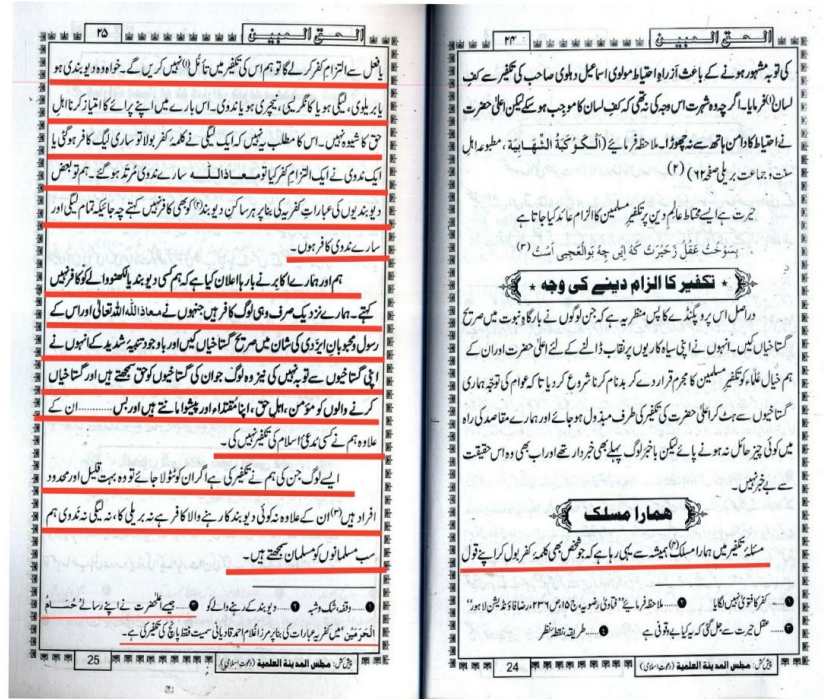 الحق المبین
۲۴
کی توبہ مشہور ہونے کے باعث از راہِ احتیاط مولوی اسماعیل دہلوی صاحب کی تکفیر سے کفِ
لسان(۱) فرمایا۔ اگرچہ وہ شہرت اس درجہ کی نہ تھی کہ کفِ لسان کا موجب ہوسکے لیکن اعلیٰ حضرت
نے احتیاط کا دامن ہاتھ سے نہ چھوڑا۔ ملاحظہ فرمائیے (اَلْکَوْکَبَۃُ الشَّھَابِیَۃ، مطبوعہ اہلِ
سنت و جماعت بریلی صفحہ ۶۲) (۲)
حیرت ہے ایسے محتاط عالمِ دین پر تکفیرِ مسلمین کا الزام عائد کیا جاتا ہے
بسوخت عقل ز حیرت کہ ایں چہ بوالعجبی است (۳)
تکفیر کا الزام دینے کی وجہ
دراصل اس پروپیگنڈے کا پس منظر یہ ہے کہ جن لوگوں نے بارگاہِ نبوت میں صریح
گستاخیاں کیں۔ انہوں نے اپنی سیاہ کاریوں پر نقاب ڈالنے کے لئے اعلیٰ حضرت اور ان کے
ہم خیال علماء کو تکفیرِ مسلمین کا مجرم قرار دے کر بدنام کرنا شروع کر دیا تاکہ عوام کی توجہ ہماری
گستاخیوں سے ہٹ کر اعلیٰ حضرت کی تکفیر کی طرف مبذول ہو جائے اور ہمارے مقاصد کی راہ
میں کوئی چیز حائل نہ ہونے پائے لیکن باخبر لوگ پہلے بھی خبردار تھے اور اب بھی وہ اس حقیقت
سے بے خبر نہیں۔
ہمارا مسلک
مسئلۂ تکفیر میں ہمارا مسلک(۴) ہمیشہ سے یہی رہا ہے کہ جو شخص بھی کلمۂ کفر بول کر اپنے قول
۱......کفر کا فتویٰ نہیں لگایا ۲......ملاحظہ فرمائیے "فتاویٰ رضویہ، ج۱۵، ص۲۳۶، رضا فاؤنڈیشن لاہور"
۳......عقل حیرت سے جل گئی کہ یہ کیا بے وقوفی ہے ۴......طریقہ، نقطۂ نظر
پیش کش: مجلس المدینۃ العلمیۃ (دعوتِ اسلامی)
24
الحق المبین
۲۵
یا فعل سے التزامِ کفر کرلے گا تو ہم اس کی تکفیر میں تامل(۱) نہیں کریں گے۔ خواہ وہ دیوبندی ہو
یا بریلوی، لیگی ہو یا کانگریسی، نیچری ہو یا ندوی۔ اس بارے میں اپنے پرائے کا امتیاز کرنا اہلِ
حق کا شیوہ نہیں۔ اس کا مطلب یہ نہیں کہ ایک لیگی نے کلمۂ کفر بولا تو ساری لیگ کافر ہو گئی یا
ایک ندوی نے ایک التزامِ کفر کیا تو معاذاللہ سارے ندوی مُرتد ہو گئے۔ ہم تو بعض
دیوبندیوں کی عباراتِ کفریہ کی بنا پر ہر ساکنِ دیوبند(۲) کو بھی کافر نہیں کہتے چہ جائیکہ تمام لیگی اور
سارے ندوی کافر ہوں۔
ہم اور ہمارے اکابر نے بارہا اعلان کیا ہے کہ ہم کسی دیوبند یا لکھنؤ والے کو کافر نہیں
کہتے۔ ہمارے نزدیک صرف وہی لوگ کافر ہیں جنہوں نے معاذاللہ اللہ تعالیٰ اور اس کے
رسول و محبوبانِ ایزدی کی شان میں صریح گستاخیاں کیں اور باوجود تنبیہِ شدید کے انہوں نے
اپنی گستاخیوں سے توبہ نہیں کی نیز وہ لوگ جو ان کی گستاخیوں کو حق سمجھتے ہیں اور گستاخیاں
کرنے والوں کو مؤمن، اہلِ حق، اپنا مقتداء اور پیشوا مانتے ہیں اور بس............ان کے
علاوہ ہم نے کسی مدعیٔ اسلام کی تکفیر نہیں کی۔
ایسے لوگ جن کی ہم نے تکفیر کی ہے اگر ان کو ٹٹولا جائے تو وہ بہت قلیل اور محدود
افراد ہیں(۳) ان کے علاوہ نہ کوئی دیوبند کا رہنے والا کافر ہے نہ بریلی کا، نہ لیگی نہ ندوی ہم
سب مسلمانوں کو مسلمان سمجھتے ہیں۔
۱......وقفہ، شک و شبہ ۲......دیوبند کے رہنے والے کو ۳......جیسے اعلیٰحضرت نے اپنے رسالے حُسَام
الْحَرَمَیْن میں کفریہ عبارات کی بنا پر مرزا غلام احمد قادیانی سمیت فقط پانچ کی تکفیر کی ہے۔
پیش کش: مجلس المدینۃ العلمیۃ (دعوتِ اسلامی)
25